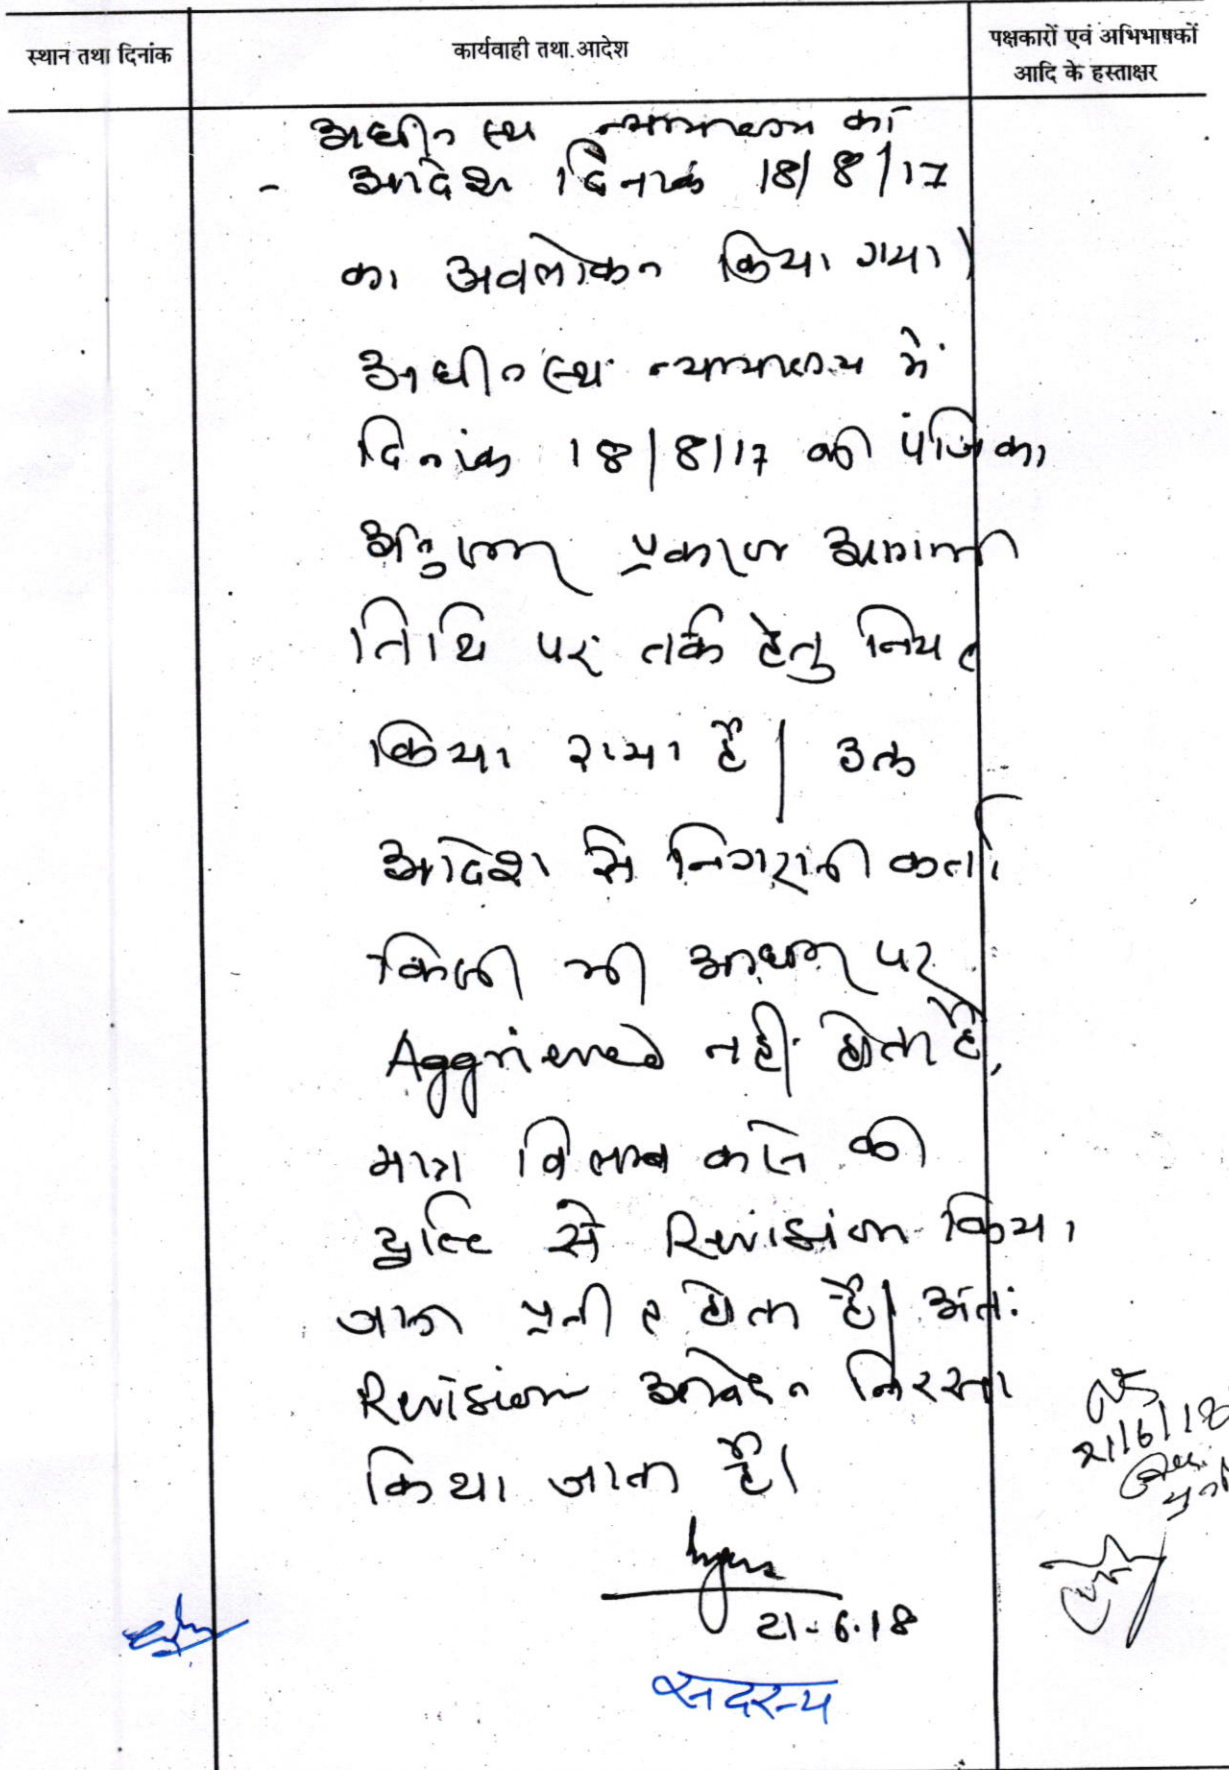 स्थान तथा दिनांक
कार्यवाही तथा आदेश
पक्षकारों एवं अभिभाषकों
आदि के हस्ताक्षर
अधीनस्थ न्यायालय का
- आदेश दिनांक 18/8/17
का अवलोकन किया गया।
अधीनस्थ न्यायालय में
दिनांक 18/8/17 की पंजिका
अनुसार प्रकरण आगामी
तिथि पर तर्क हेतु नियत
किया गया है। उक्त
आदेश से निगरानी कर्ता
किसी भी आधार पर
Aggrieved नहीं होता है,
मात्र विलम्ब करने की
दृष्टि से Revision किया
जाना प्रतीत होता है। अतः
Revision आवेदन निरस्त
किया जाता है।
21-6-18
सदस्य
21/6/18